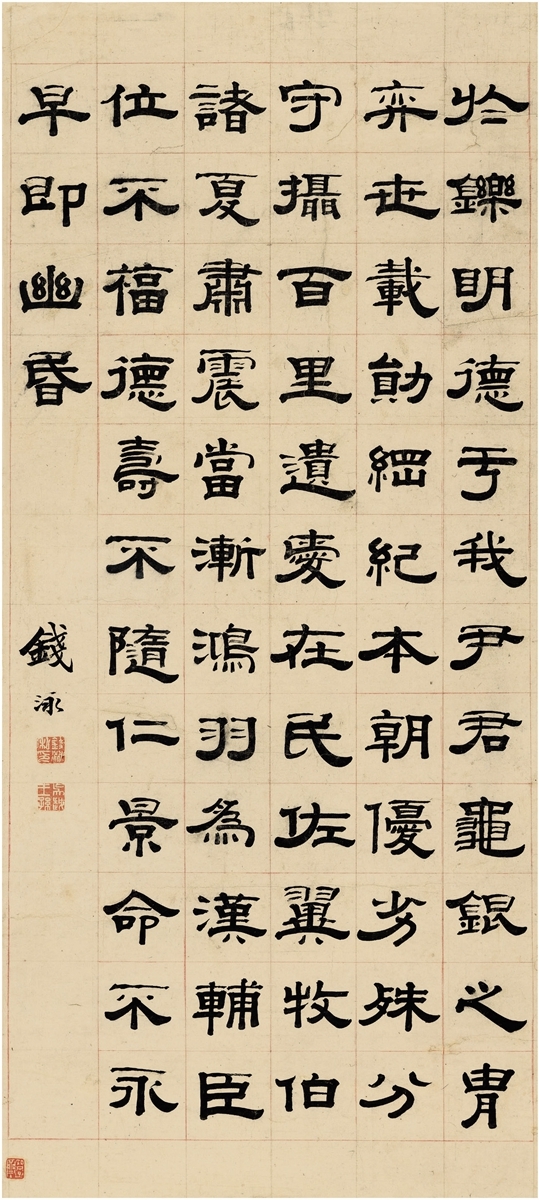 於鑠明德于我尹君龜銀之胄
弈世載勛綱紀本朝優劣殊分
守攝百里遺愛在民佐翼牧伯
諸夏肅震當漸鴻羽為漢輔臣
位不福德壽不隨仁景命不永
早即幽昏
錢泳